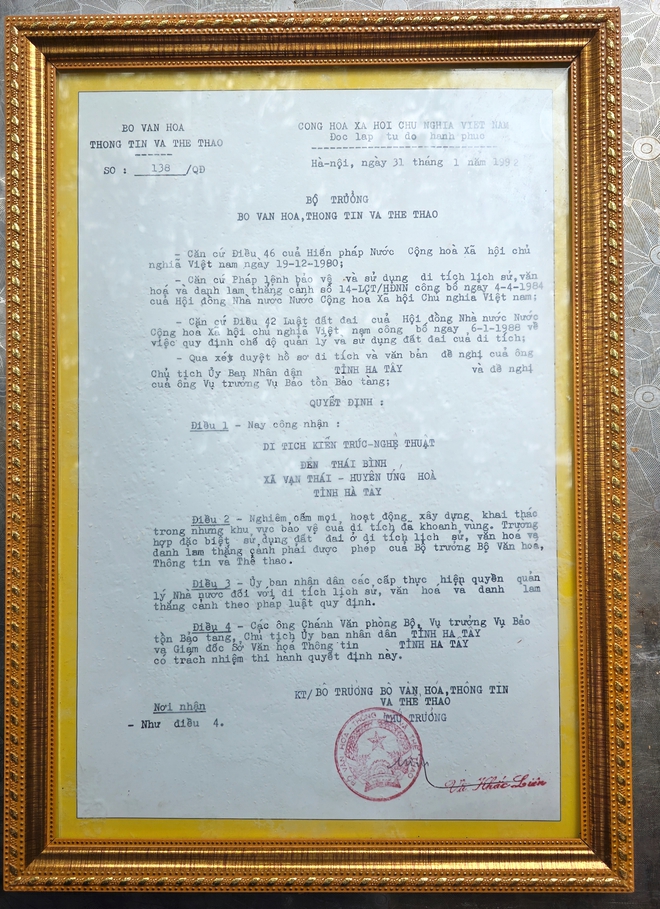 BO VAN HOA
THONG TIN VA THE THAO
SO : 138 /QĐ
CONG HOA XA HOI CHU NGHIA VIET NAM
Đoc lap tu do hanh phuc
Hà-nội, ngày 31 tháng 1 năm 1992
BỘ TRƯỞNG
BO VAN HOA, THONG TIN VA THE THAO
- Căn cứ Điều 46 của Hiến pháp Nước Cộng hoà Xã hội chủ
nghĩa Việt nam ngày 19-12-1980;
- Căn cứ Pháp lệnh bảo vệ và sử dụng di tích lịch sử, văn
hoá và danh lam thắng cảnh số 14-LCT/HĐNN công bố ngày 4-4-1984
của Hội đồng Nhà nước Nước Cộng hoà Xã hội Chủ nghĩa Việt nam;
- Căn cứ Điều 42 Luật đất đai của Hội đồng Nhà nước Nước
Cộng hoà Xã hội chủ nghĩa Việt nam công bố ngày 6-1-1988 về
việc quy định chế độ quản lý và sử dụng đất đai của di tích;
- Qua xét duyệt hồ sơ di tích và văn bản đề nghị của ông
Chủ tịch Ủy Ban Nhân dân TỈNH HA TÂY và đề nghị
của ông Vụ trưởng Vụ Bảo tồn Bảo tàng;
QUYẾT ĐỊNH :
Điều 1 - Nay công nhận :
DI TICH KIẾN TRÚC-NGHỆ THUẬT
ĐỀN THÁI BÌNH
XÃ VẠN THÁI - HUYỆN ỨNG HOÀ
TỈNH HÀ TÂY
Điều 2 - Nghiêm cấm mọi hoạt động xây dựng khai thác
trong những khu vực bảo vệ của di tích đã khoanh vùng. Trường
hợp đặc biệt sử dụng đất đai ở di tích lịch sử, văn hoá và
danh lam thắng cảnh phải được phép của Bộ trưởng Bộ Văn hoá,
Thông tin và Thể thao.
Điều 3 - Ủy ban nhân dân các cấp thực hiện quyền quản
lý Nhà nước đối với di tích lịch sử, văn hoá và danh lam
thắng cảnh theo pháp luật quy định.
Điều 4 - Các ông Chánh Văn phòng Bộ, Vụ trưởng Vụ Bảo
tồn Bảo tàng, Chủ tịch Ủy ban nhân dân TỈNH HA TÂY
và Giám đốc Sở Văn hoá Thông tin TỈNH HA TÂY
có trách nhiệm thi hành quyết định này.
Nơi nhận
- Như điều 4.
KT/ BỘ TRƯỞNG BỘ VĂN HÓA, THÔNG TIN
VA THE THAO
THỨ TRƯỞNG
Vũ Khắc Liên